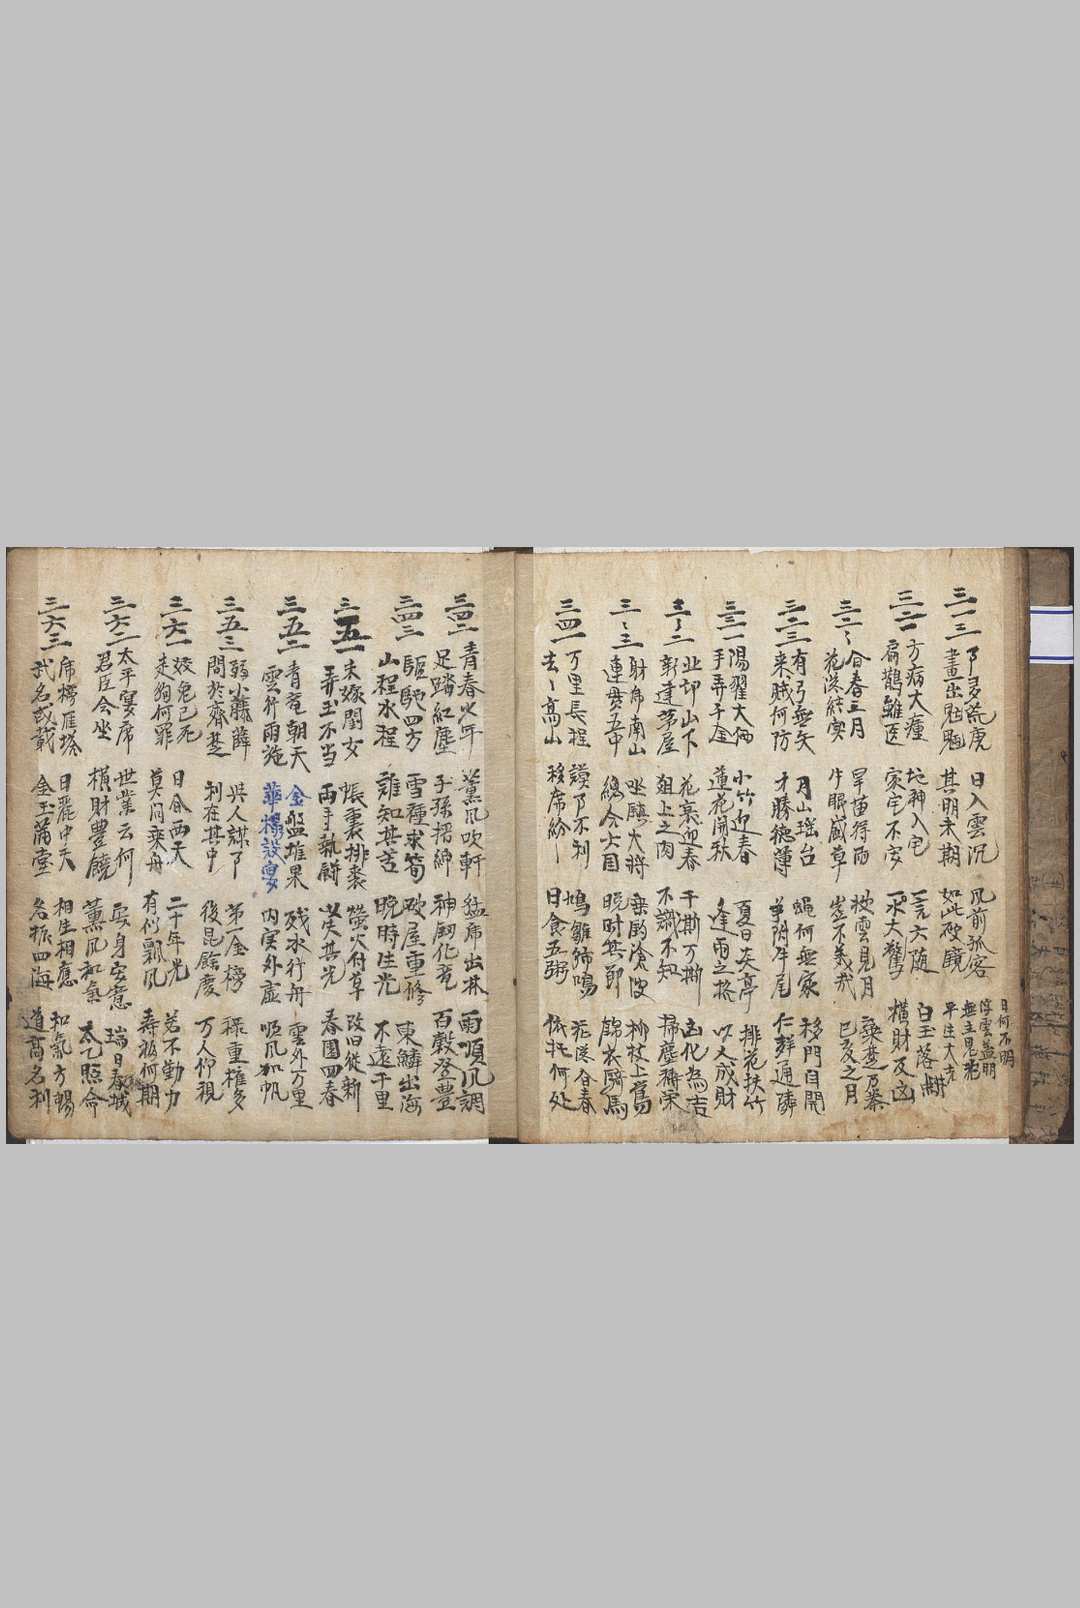 三一三
日入雲沉 風前孤客 日何不明
浮雲蓋明
晝出魍魎 其明未期 如此破鏡 平生大
三二一
方病大瘇 地神入宅 言大随 白玉落
扁鵲難医 家宅不安 大驚 橫財反凶
三二二
春三月 旱苗得雨 披雲見月 乘楚乃秦
花落結宲 牛眠草 豈不美哉 巳亥之月
三二三
有弓無矢 月山瑤台 蝇何無家 移門自開
来賊何防 才勝德薄 争附牛尾 仁辞通隣
三三一
陽翟大
小竹迎春 夏日矣亭 排花扶竹
手弄千金 蓮花開秋 逢雨之格 以人成財
三三二
北邙山下 花裏迎春 千斯万斯 凶化為吉
新建茅屋 俎上之肉 不識不知 掃塵得栄
三三三
射席南山 坐鎮大将 乘馬 柳枝上鴬
連貫五中 總令士国 晩財其節 錦衣騎馬
三四一
万里長程 謨了不利 鳩雛飾鳴 落春
去去高山 移席紛紛 日食五粥 依托何处
三四二
青春少年 薰風吹軒 猛席出林 雨順風調
足踏紅塵 子孫 神釼化竜 百穀登豊
三四三
驅馳四方 雪種求筍 破屋重修 東鱗出海
山程水程 誰知其苦 晩時生光 不遠千里
三五一
未嫁閨女 帳裏排裘 螢火付草 改旧從新
弄玉不当 両手執餅 失其光 春園四春
三五二
青竜朝天 金盤堆果 残水行舟 雲外万里
雲行雨施 華榻設宴 内实外虗 順風加帆
三五三
弱小藤薛 与人謀了 第一金榜 祿重權多
間於齊楚 利在其中 後昆餘慶 万人仰視
三六一
狡兔已死 日合両天 二十年光 若不勤力
走狗何罪 莫問乘舟 有似飄風 壽福何期
三六二
太平宴席 世業云何 安身安意 瑞日春城
君臣会坐 横財豊饒 薰風和氣 太乙照命
三六三
席榜雁塔 日麗中天 相生相應 和氣方暢
武名或載 金玉滿堂 名振四海 道高名利